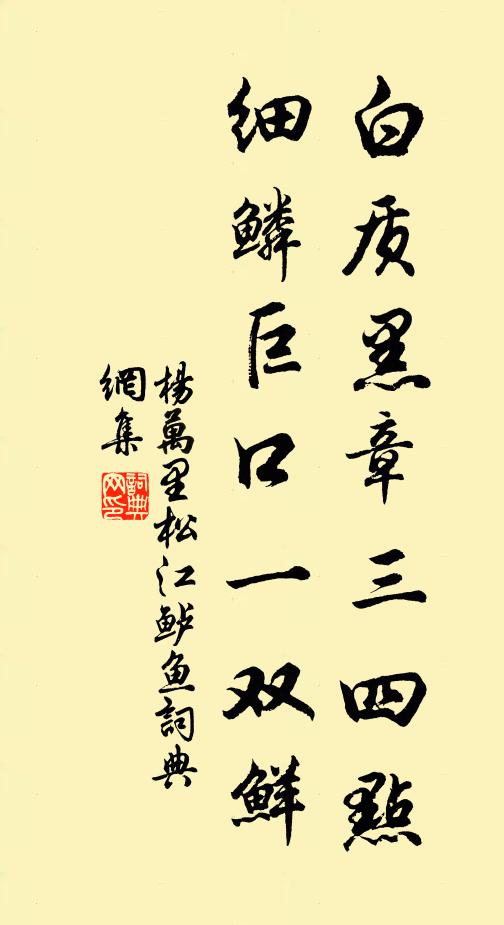 白质黑章三四點
细鳞巨口一双鮮
楊萬里松江鲈魚詞典
網集
詞典网印